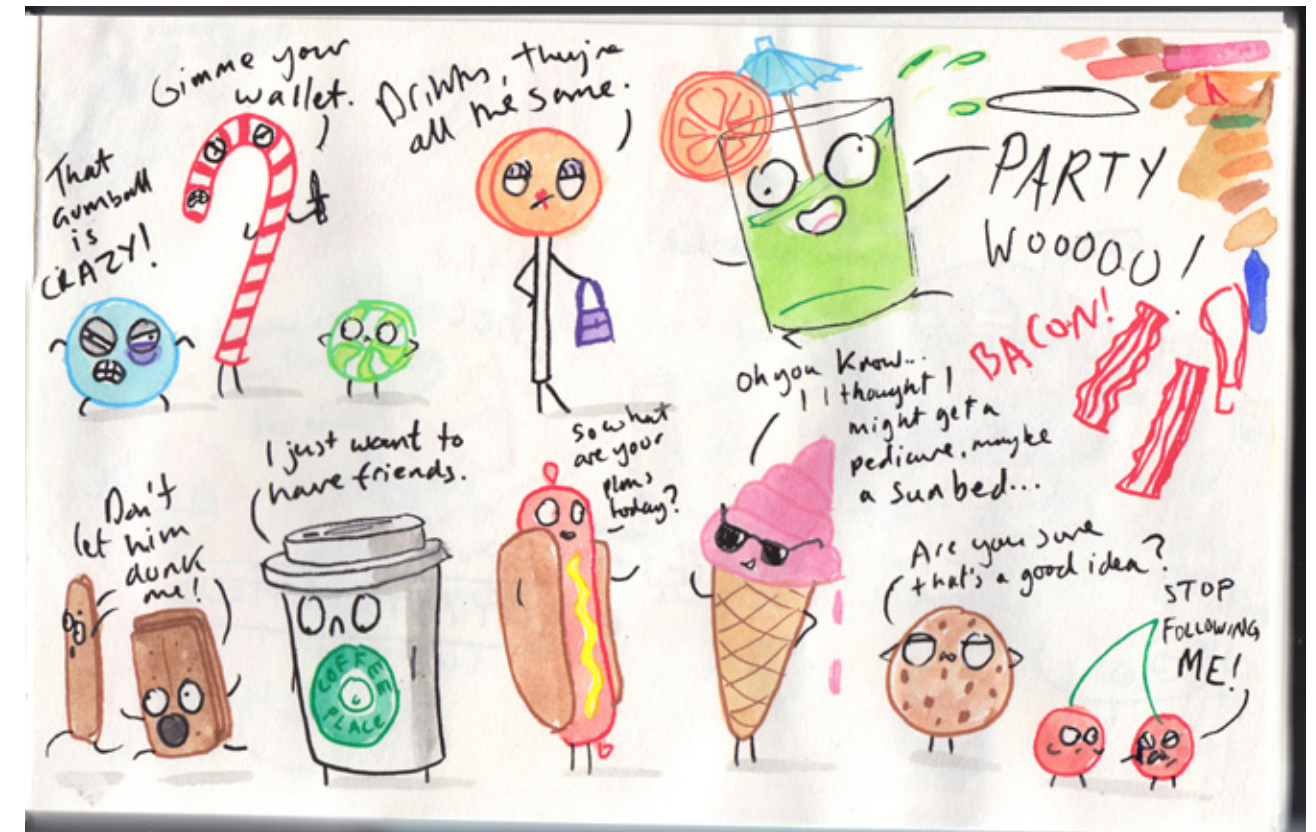 That
gumball
is
CRAZY!
Gimme your
wallet.
Drinks, they're
all the same.
PARTY
WOOOOO!
BACON!
Don't
let him
dunk
me!
I just want to
have friends.
COFFEE
PLACE
So what
are your
plans
today?
Oh you know...
I I thought I
might get a
pedicure, maybe
a sunbed...
Are you sure
that's a good idea?
STOP
FOLLOWING
ME!